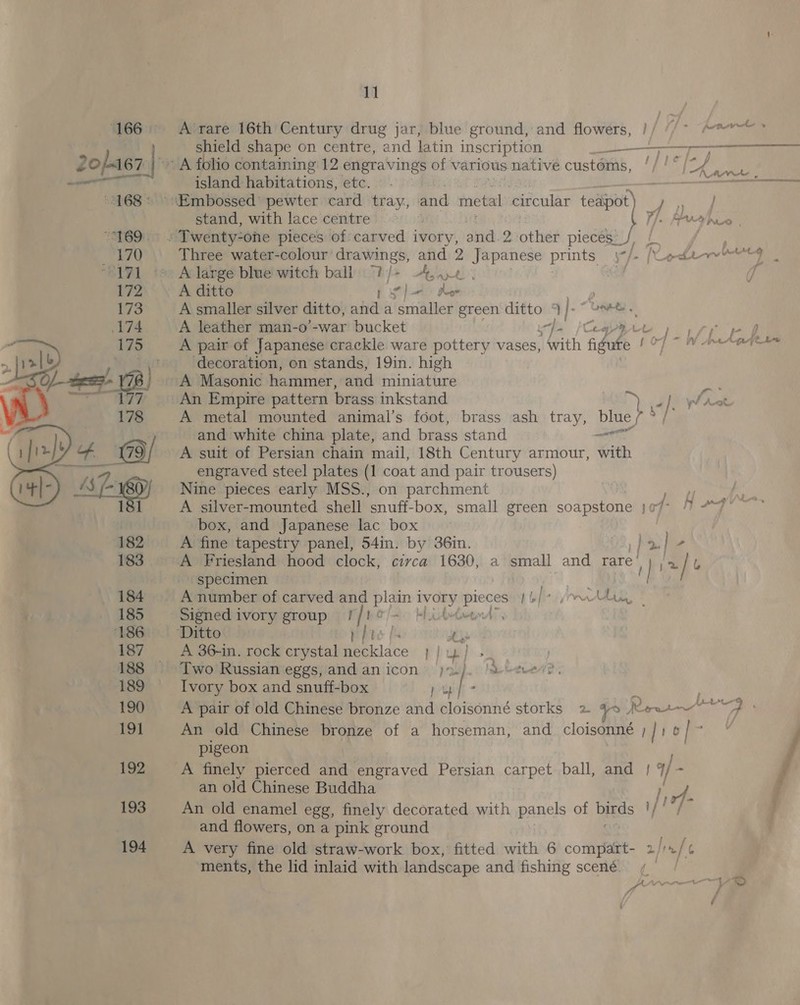 11
166 A rare 16th Century drug jar, blue ground, and flowers,
shield shape on centre, and latin inscription
20/- 167 A folio containing 12 engravings of various native customs,
island habitations, etc.
168 Embossed pewter card tray, and metal circular teapot)
stand, with lace centre
169 Twenty-one pieces of carved ivory, and 2 other pieces
170 Three water-colour drawings, and 2 Japanese prints
171 A large blue witch ball
172 A ditto
173 A smaller silver ditto, and a smaller green ditto
174 A leather man-o'-war bucket
175 A pair of Japanese crackle ware pottery vases, with figure
decoration, on stands, 19in. high
176 A Masonic hammer, and miniature
177 An Empire pattern brass inkstand
178 A metal mounted animal's foot, brass ash tray, blue
and white china plate, and brass stand
179 A suit of Persian chain mail, 18th Century armour, with
engraved steel plates (1 coat and pair trousers)
180 Nine pieces early MSS., on parchment
181 A silver-mounted shell snuff-box, small green soapstone
box, and Japanese lac box
182 A fine tapestry panel, 54in. by 36in.
183 A Friesland hood clock, circa 1630, a small and rare
specimen
184 A number of carved and plain ivory pieces
185 Signed ivory group
186 Ditto
187 A 36-in. rock crystal necklace
188 Two Russian eggs, and an icon
189 Ivory box and snuff-box
190 A pair of old Chinese bronze and cloisonné storks
191 An old Chinese bronze of a horseman, and cloisonné
pigeon
192 A finely pierced and engraved Persian carpet ball, and
an old Chinese Buddha
193 An old enamel egg, finely decorated with panels of birds
and flowers, on a pink ground
194 A very fine old straw-work box, fitted with 6 compart-
ments, the lid inlaid with landscape and fishing scene